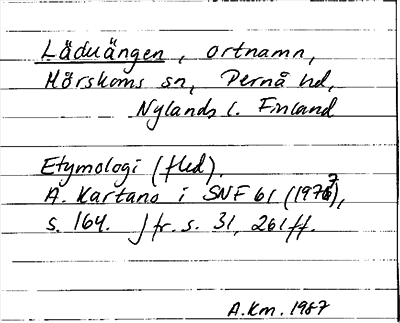 Läduängen, ortnamn,
Mörskoms sn, Pernå hd,
Nylands l. Finland
Etymologi (fled).
A. Kartano i SNF 61 (1977),
s. 164. Jfr. s. 31, 261ff.
A.Km. 1987